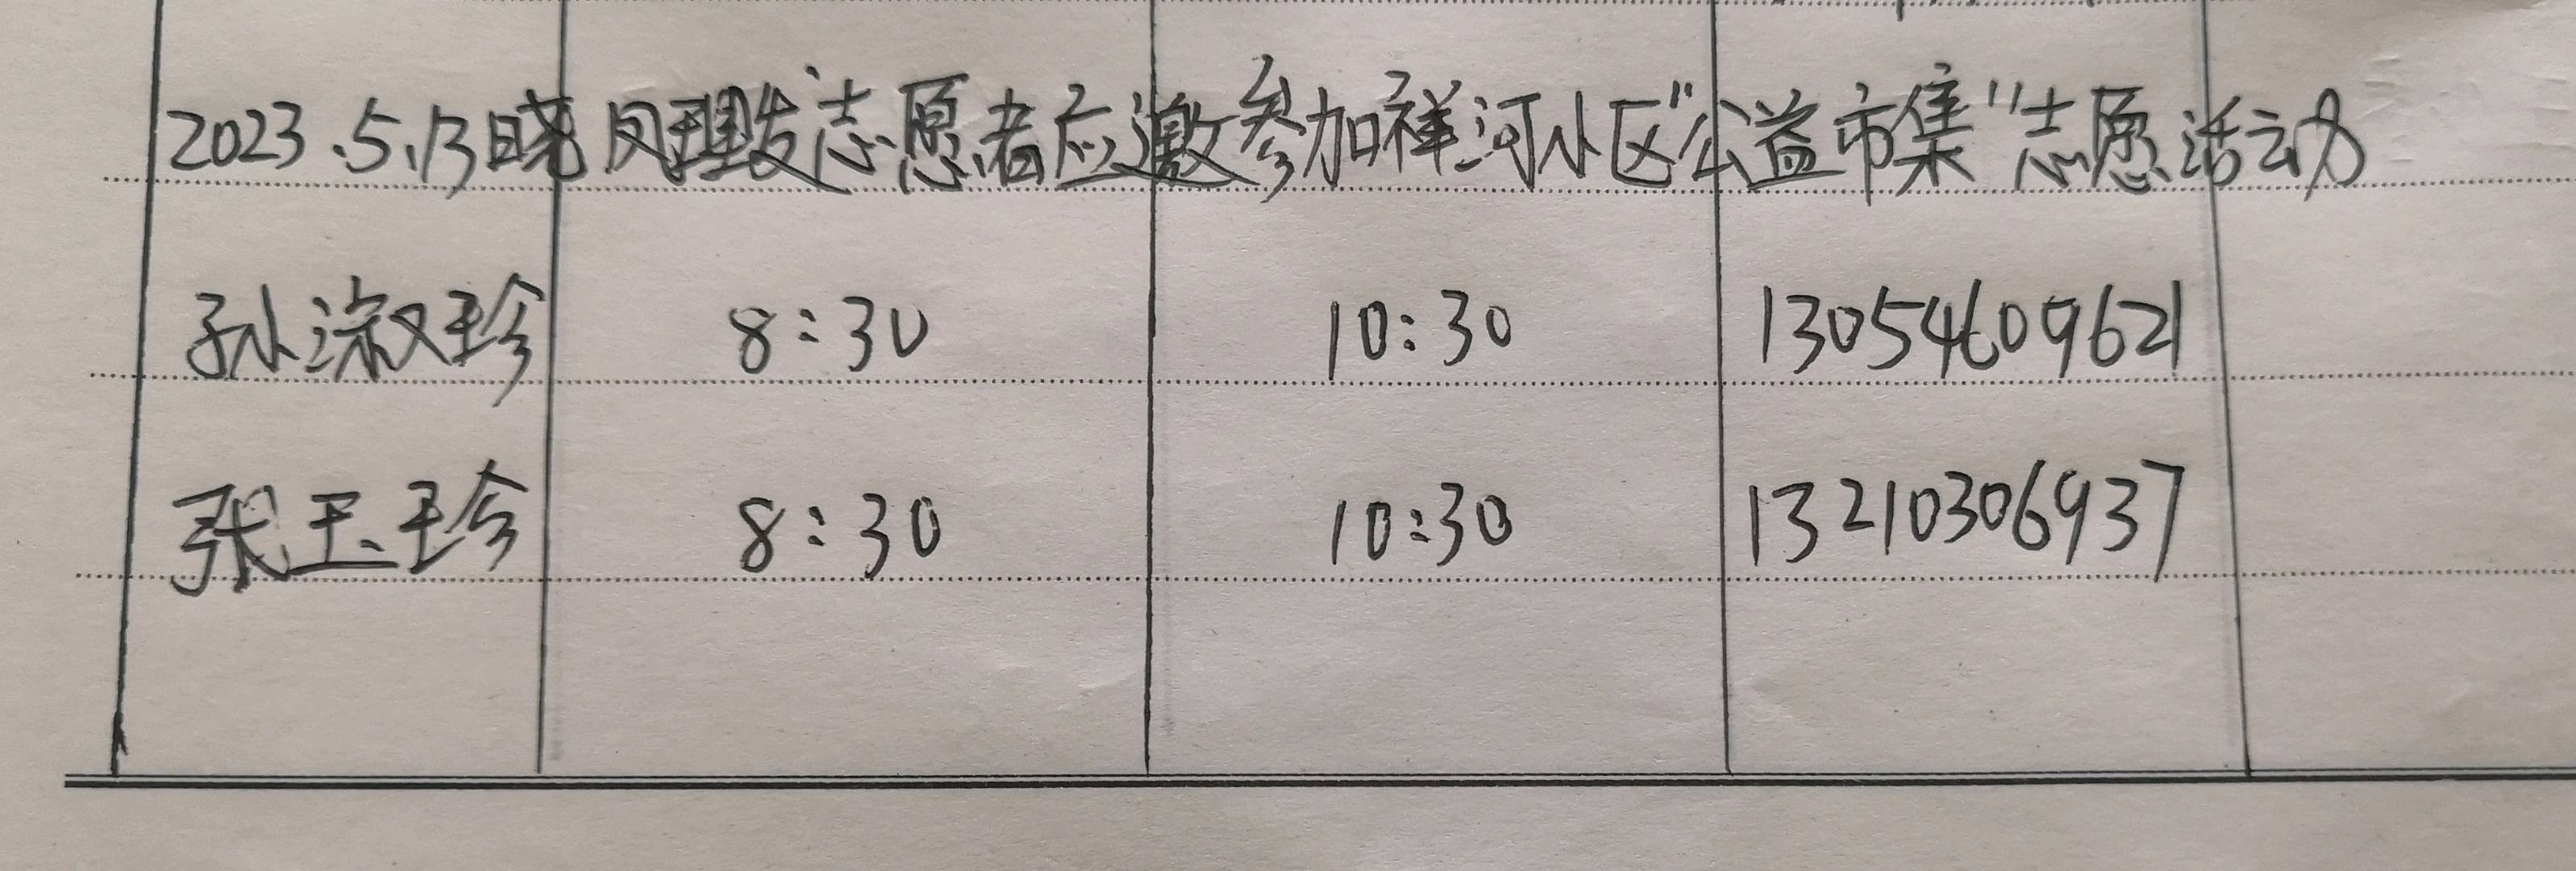 2023.5.13晓凤理发志愿者应邀参加祥河小区"公益市集"志愿活动
孙淑珍 8:30 10:30 13054609621
张玉珍 8:30 10:30 13210306937